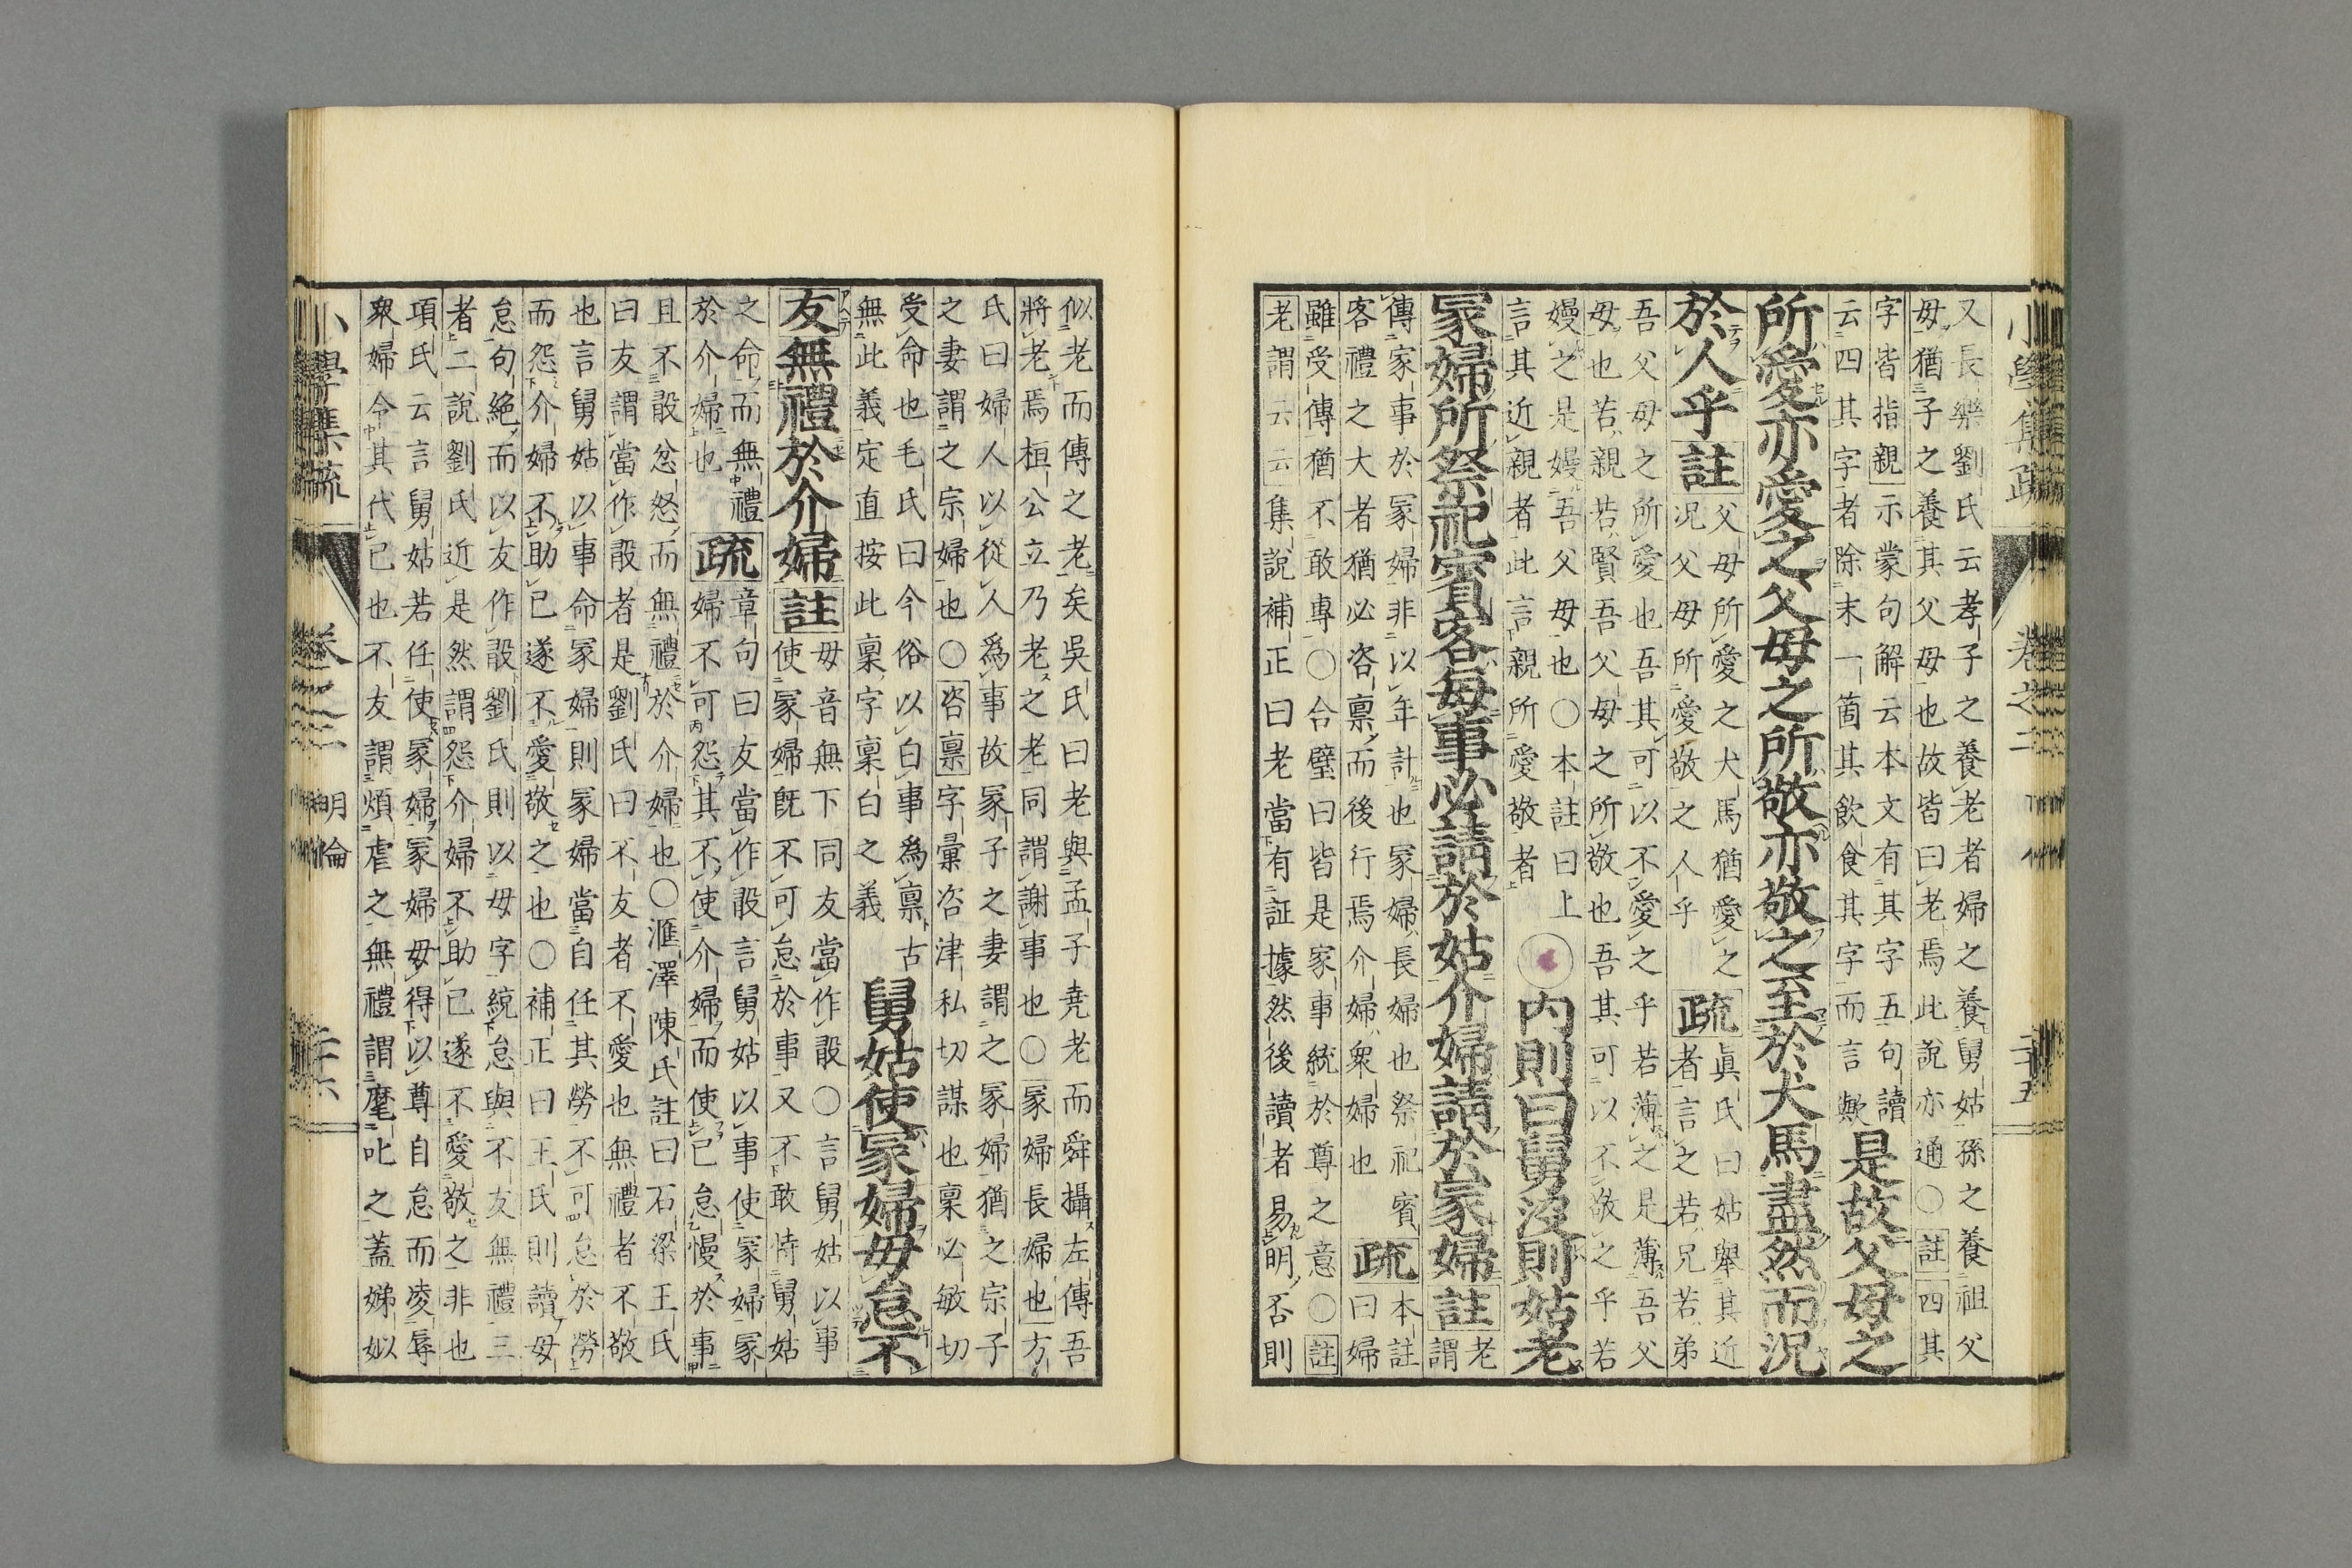 小學集疏 卷之二 二十五
又長樂劉氏云孝子之養老者婦之養舅姑孫之養祖父
母猶子之養其父母也故皆曰老焉此說亦通〇註四其
字皆指親示蒙句解云本文有其字五句讀
云四其字者除末一箇其飲食其字而言歟
是故父母之
所愛亦愛之父母之所敬亦敬之至於犬馬盡然而況
於人乎註
父母所愛之犬馬猶愛之
況父母所愛敬之人乎
疏
眞氏曰姑舉其近
者言之若兄若弟
吾父母之所愛也吾其可以不愛之乎若薄之是薄吾父
母也若親若賢吾父母之所敬也吾其可以不敬之乎若
嫚之是嫚吾父母也〇本註曰上
言其近親者此言親所愛敬者
內則曰舅沒則姑老
冢婦所祭祀賓客每事必請於姑介婦請於冢婦註
老
謂
傳家事於冢婦非以年計也冢婦長婦也祭祀賓
客禮之大者猶必咨稟而後行焉介婦衆婦也
疏
本註
曰婦
雖受傳猶不敢專〇合璧曰皆是家事統於尊之意〇註
老謂云云集說補正曰老當有証據然後讀者易明否則
似老而傳之老矣吳氏曰老與孟子堯老而舜攝左傳吾
將老焉桓公立乃老之老同謂謝事也〇冢婦長婦也方
氏曰婦人以從人爲事故冢子之妻謂之冢婦猶之宗子
之妻謂之宗婦也〇咨稟字彙咨津私切謀也稟必敏切
受命也毛氏曰今俗以白事爲稟古
無此義定直按此稟字稟白之義
舅姑使冢婦毋怠不
友無禮於介婦註
毋音無下同友當作敢〇言舅姑以事
使冢婦旣不可怠於事又不敢恃舅姑
之命而無禮
於介婦也
疏
章句曰友當作敢言舅姑以事使冢婦冢
婦不可怨其不使介婦而使己怠慢於事
且不敢忿怒而無禮於介婦也〇滙澤陳氏註曰石梁王氏
曰友謂當作敢者是劉氏曰不友者不愛也無禮者不敬
也言舅姑以事命冢婦則冢婦當自任其勞不可怠於勞
而怨介婦不助己遂不愛敬之也〇補正曰王氏則讀毋
怠句絶而以友作敢劉氏則以毋字統怠與不友無禮三
者二說劉氏近是然謂怨介婦不助己遂不愛敬之非也
項氏云言舅姑若任使冢婦冢婦毋得以尊自怠而凌辱
衆婦令其代己也不友謂煩虐之無禮謂麾叱之蓋娣姒
小學集疏 卷之二 明倫 二十六